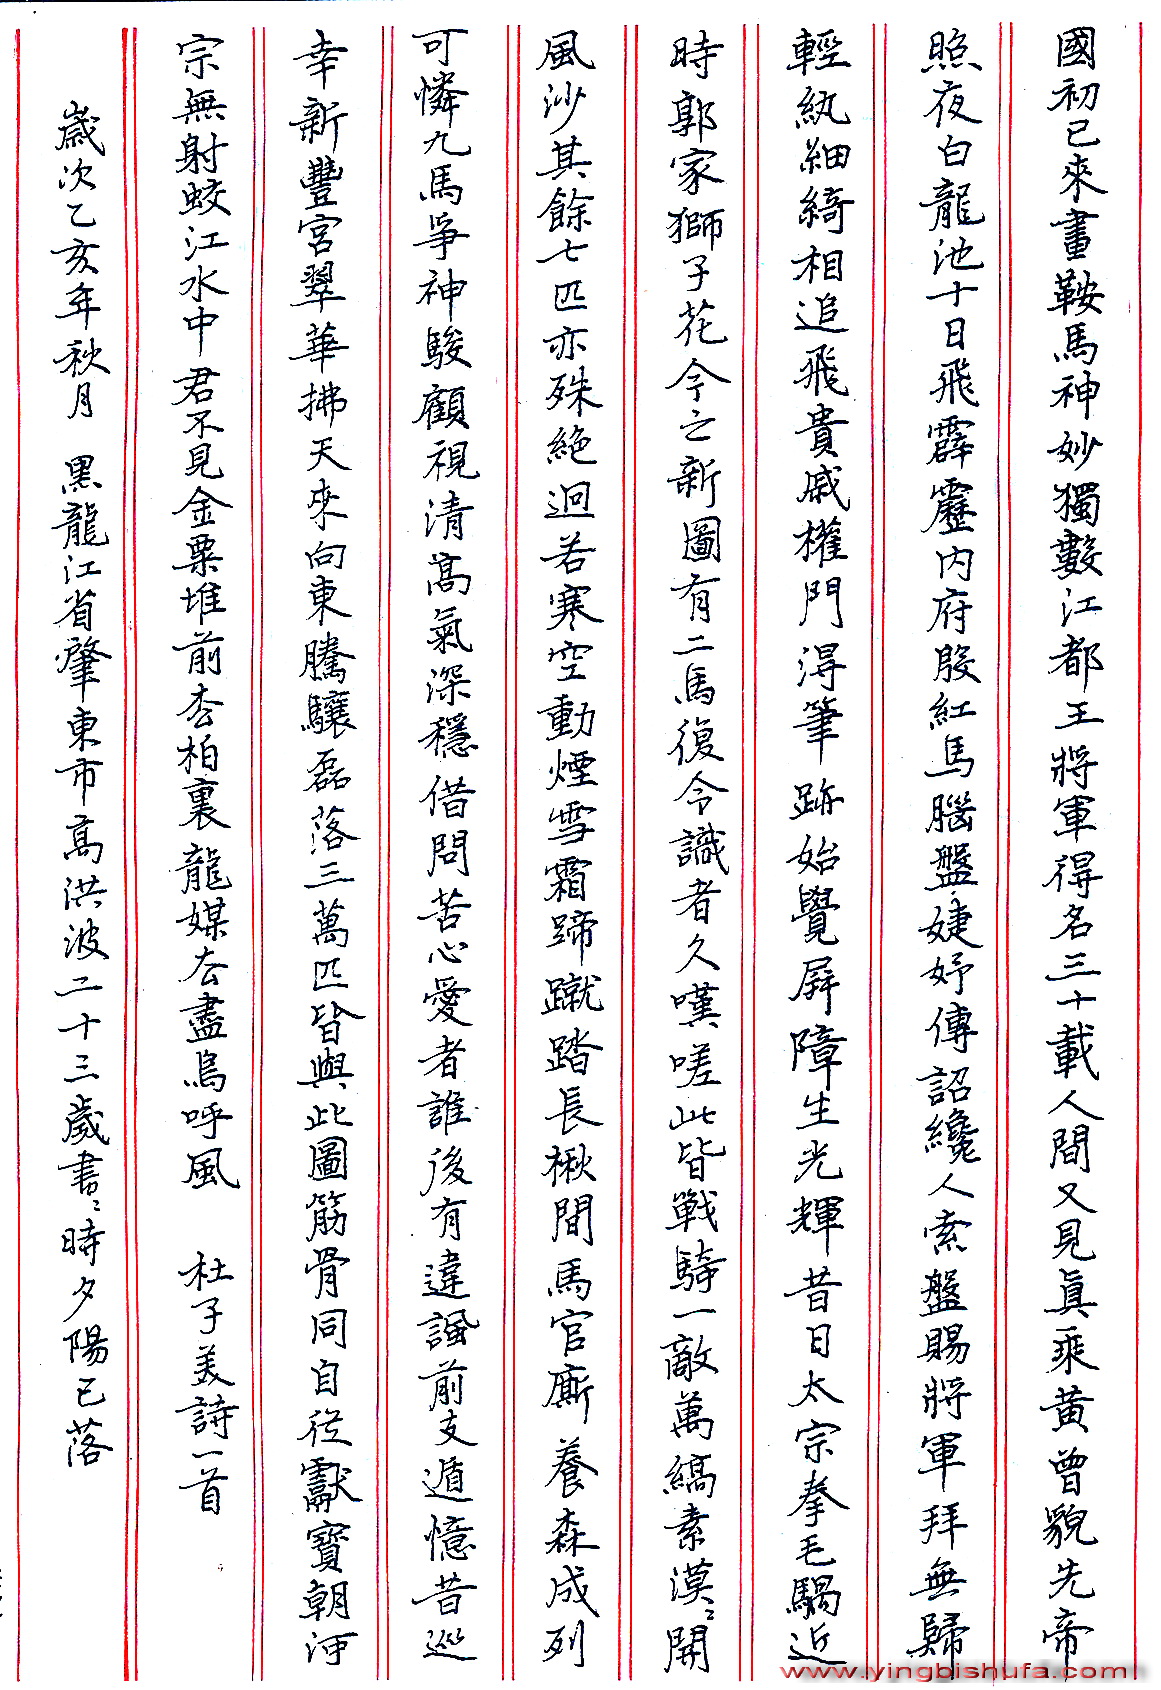 國初已來畫鞍馬神妙獨數江都王將軍得名三十載人間又見真乘黄曾貌先帝
照夜白龍池十日飛霹靂内府殷紅馬腦盤婕妤傳詔纔人索盤賜將軍拜無歸
輕紈細綺相追飛貴戚權門得筆跡始覺屏障生光輝昔日太宗拳毛騧近
時郭家獅子花今之新圖有二馬復令識者久嘆嗟此皆戰騎一敵萬縞素漠〻開
風沙其餘七匹亦殊絶迥若寒空動煙雪霜蹄蹴踏長楸間馬官廝養森成列
可憐九馬爭神駿顧視清高氣深穩借問苦心愛者誰後有違諷前支遁憶昔巡
幸新豐宮翠華拂天來向東騰驤磊落三萬匹皆與此圖筋骨同自從獻寶朝河
宗無射蛟江水中君不見金粟堆前松柏裏龍媒去盡鳥呼風　杜子美詩一首
歲次乙亥年秋月　黑龍江省肇東市高洪波二十三歲書〻時夕陽已落
www.yingbishufa.com